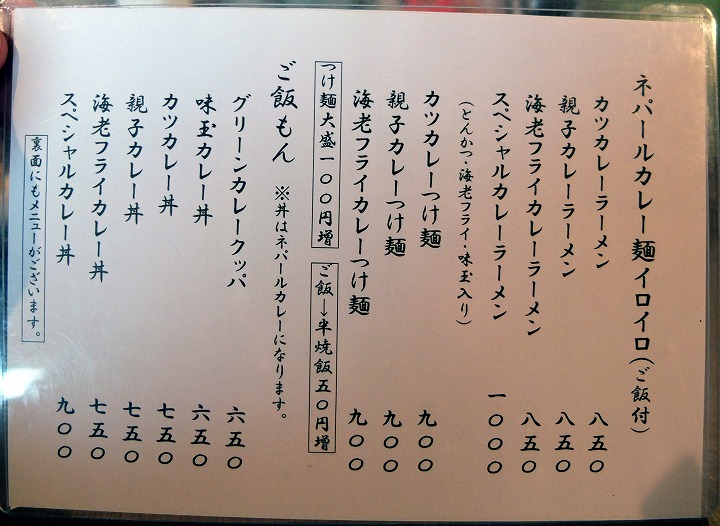 ネパールカレー麺イロイロ（ご飯付）
カツカレーラーメン 八五〇
親子カレーラーメン 八五〇
海老フライカレーラーメン 八五〇
スペシャルカレーラーメン 一〇〇〇
（とんかつ・海老フライ・味玉入り）
カツカレーつけ麺 九〇〇
親子カレーつけ麺 九〇〇
海老フライカレーつけ麺 九〇〇
つけ麺大盛一〇〇円増
ご飯→半焼飯五〇円増
ご飯もん ※丼はネパールカレーになります。
グリーンカレークッパ 六五〇
味玉カレー丼 六五〇
カツカレー丼 七五〇
親子カレー丼 七五〇
海老フライカレー丼 七五〇
スペシャルカレー丼 九〇〇
裏面にもメニューがございます。